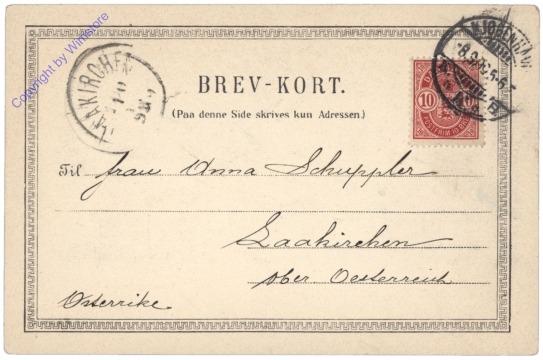 Copyright by Winstore
LAAKIRCHEN
KJØBENHAVN
BREV-KORT.
(Paa denne Side skrives kun Adressen.)
10 10
Til frau Anna Schuppler
Laakirchen
Ober Oesterreich
Österrike.